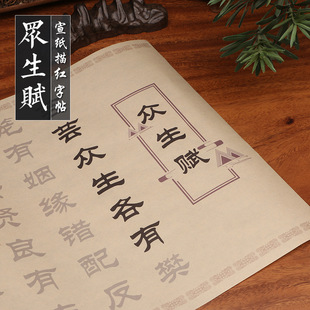 眾生賦
宣纸描红字帖
众生赋
芸众生各有樊
笼有姻缘错配反
良有